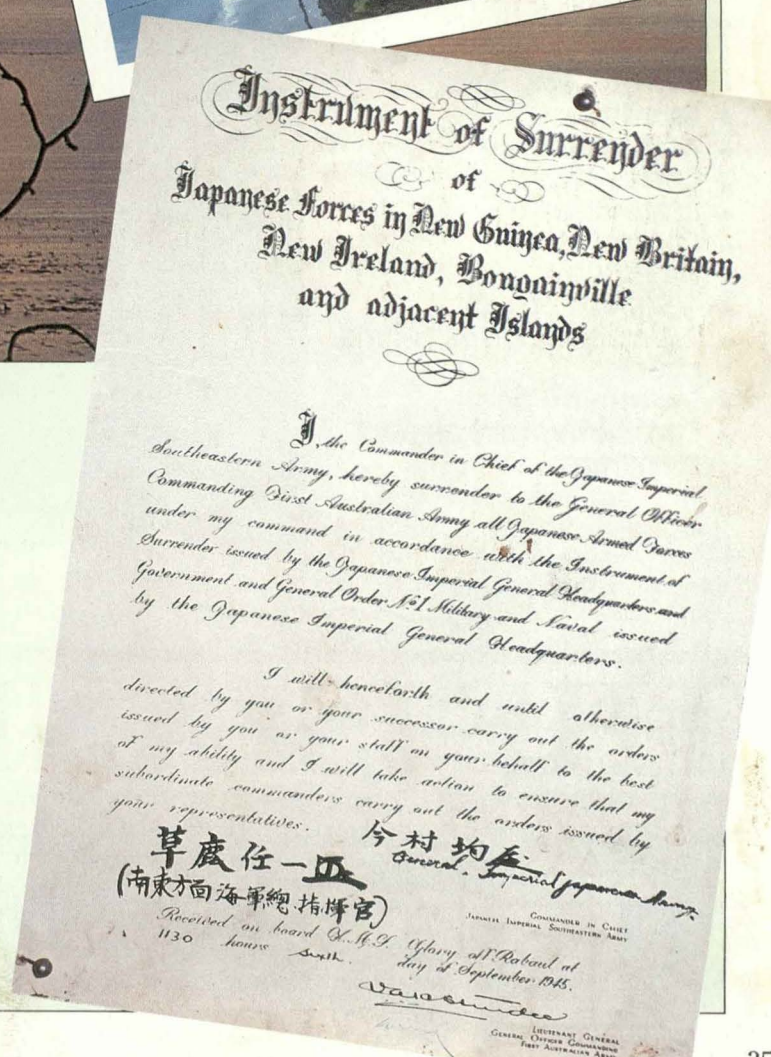 Instrument of Surrender
of
Japanese Forces in New Guinea, New Britain,
New Ireland, Bougainville
and adjacent Islands
I, the Commander in Chief of the Japanese Imperial
Southeastern Army, hereby surrender to the General Officer
Commanding First Australian Army all Japanese Armed Forces
under my command in accordance with the Instrument of
Surrender issued by the Japanese Imperial General Headquarters and
Government and General Order No 1 Military and Naval issued
by the Japanese Imperial General Headquarters.
I will henceforth and until otherwise
directed by you or your successor carry out the orders
issued by you or your staff on your behalf to the best
of my ability and I will take action to ensure that my
subordinate commanders carry out the orders issued by
your representatives.
今村均
General, Imperial Japanese Army.
COMMANDER IN CHIEF
JAPANESE IMPERIAL SOUTHEASTERN ARMY
草鹿任一
(南東方面海軍總指揮官)
Received on board H.M.S. Glory off Rabaul at
1130 hours sixth day of September 1945.
LIEUTENANT GENERAL
GENERAL OFFICER COMMANDING
FIRST AUSTRALIAN ARMY